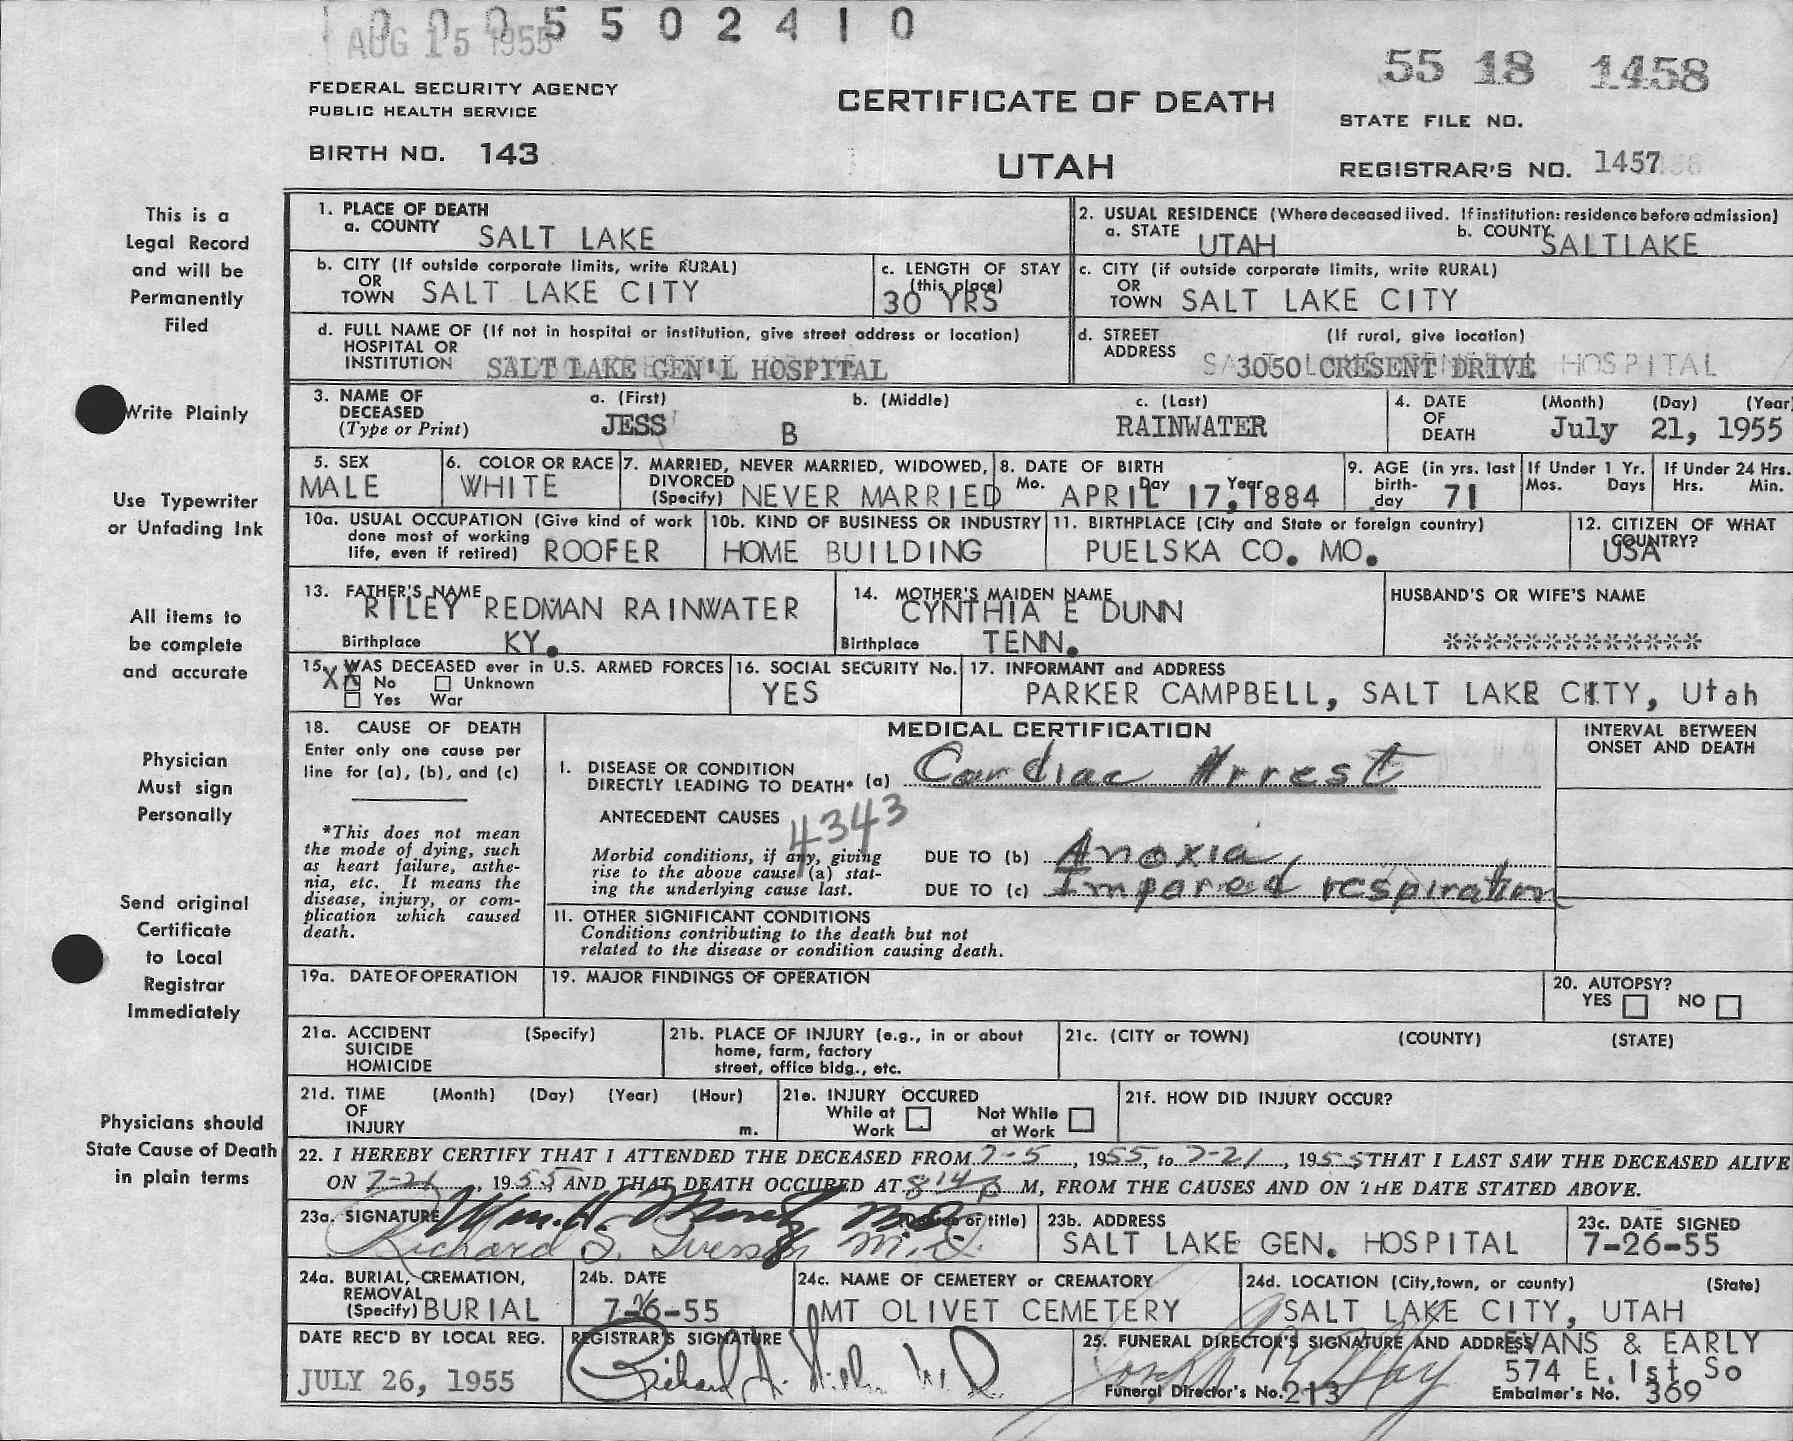 0 0 0 5 5 0 2 4 1 0
AUG 15 1955
55 18 1458
FEDERAL SECURITY AGENCY
PUBLIC HEALTH SERVICE
CERTIFICATE OF DEATH
STATE FILE NO.
BIRTH NO. 143
UTAH
REGISTRAR'S NO. 1457
This is a
Legal Record
and will be
Permanently
Filed
Write Plainly
Use Typewriter
or Unfading Ink
All items to
be complete
and accurate
Physician
Must sign
Personally
Send original
Certificate
to Local
Registrar
Immediately
Physicians should
State Cause of Death
in plain terms
1. PLACE OF DEATH
a. COUNTY SALT LAKE
2. USUAL RESIDENCE (Where deceased lived. If institution: residence before admission)
a. STATE UTAH b. COUNTY SALTLAKE
b. CITY (If outside corporate limits, write RURAL)
OR
TOWN SALT LAKE CITY
c. LENGTH OF STAY
(this place)
30 YRS
c. CITY (if outside corporate limits, write RURAL)
OR
TOWN SALT LAKE CITY
d. FULL NAME OF (If not in hospital or institution, give street address or location)
HOSPITAL OR
INSTITUTION SALT LAKE GEN'L HOSPITAL
d. STREET (If rural, give location)
ADDRESS 3050 CRESENT DRIVE HOSPITAL
3. NAME OF a. (First) b. (Middle) c. (Last)
DECEASED
(Type or Print) JESS B RAINWATER
4. DATE (Month) (Day) (Year)
OF
DEATH July 21, 1955
5. SEX
MALE
6. COLOR OR RACE
WHITE
7. MARRIED, NEVER MARRIED, WIDOWED,
DIVORCED
(Specify) NEVER MARRIED
8. DATE OF BIRTH
Mo. Day Year
APRIL 17,1884
9. AGE (in yrs. last
birth-
day 71
If Under 1 Yr.
Mos. Days
If Under 24 Hrs.
Hrs. Min.
10a. USUAL OCCUPATION (Give kind of work
done most of working
life, even if retired) ROOFER
10b. KIND OF BUSINESS OR INDUSTRY
HOME BUILDING
11. BIRTHPLACE (City and State or foreign country)
PUELSKA CO. MO.
12. CITIZEN OF WHAT
COUNTRY?
USA
13. FATHER'S NAME
RILEY REDMAN RAINWATER
Birthplace KY.
14. MOTHER'S MAIDEN NAME
CYNTHIA E DUNN
Birthplace TENN.
HUSBAND'S OR WIFE'S NAME
**************
15. WAS DECEASED ever in U.S. ARMED FORCES
X No Unknown
Yes War
16. SOCIAL SECURITY No.
YES
17. INFORMANT and ADDRESS
PARKER CAMPBELL, SALT LAKE CITY, Utah
18. CAUSE OF DEATH
Enter only one cause per
line for (a), (b), and (c)
*This does not mean
the mode of dying, such
as heart failure, asthe-
nia, etc. It means the
disease, injury, or com-
plication which caused
death.
MEDICAL CERTIFICATION
INTERVAL BETWEEN
ONSET AND DEATH
I. DISEASE OR CONDITION
DIRECTLY LEADING TO DEATH* (a) Cardiac Arrest
ANTECEDENT CAUSES
4343
Morbid conditions, if any, giving
rise to the above cause (a) stat-
ing the underlying cause last.
DUE TO (b) Anoxia
DUE TO (c) Impared respiration
II. OTHER SIGNIFICANT CONDITIONS
Conditions contributing to the death but not
related to the disease or condition causing death.
19a. DATE OF OPERATION
19. MAJOR FINDINGS OF OPERATION
20. AUTOPSY?
YES NO
21a. ACCIDENT (Specify)
SUICIDE
HOMICIDE
21b. PLACE OF INJURY (e.g., in or about
home, farm, factory
street, office bldg., etc.
21c. (CITY or TOWN) (COUNTY) (STATE)
21d. TIME (Month) (Day) (Year) (Hour)
OF
INJURY m.
21e. INJURY OCCURED
While at Work Not While at Work
21f. HOW DID INJURY OCCUR?
22. I HEREBY CERTIFY THAT I ATTENDED THE DECEASED FROM 7-5, 1955, to 7-21, 1955 THAT I LAST SAW THE DECEASED ALIVE
ON 7-21, 1955, AND THAT DEATH OCCURED AT 8:14 P M, FROM THE CAUSES AND ON THE DATE STATED ABOVE.
23a. SIGNATURE (Degree or title)
Richard S. Iverson M.D.
23b. ADDRESS
SALT LAKE GEN. HOSPITAL
23c. DATE SIGNED
7-26-55
24a. BURIAL, CREMATION,
REMOVAL
(Specify) BURIAL
24b. DATE
7-26-55
24c. NAME OF CEMETERY or CREMATORY
MT OLIVET CEMETERY
24d. LOCATION (City, town, or county) (State)
SALT LAKE CITY, UTAH
DATE REC'D BY LOCAL REG.
JULY 26, 1955
REGISTRAR'S SIGNATURE
25. FUNERAL DIRECTOR'S SIGNATURE AND ADDRESS EVANS & EARLY
574 E. 1st So
Funeral Director's No. 213 Embalmer's No. 369